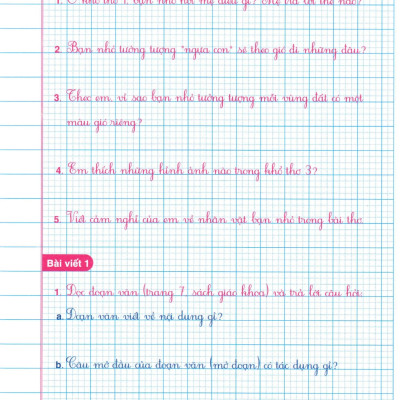 1. Ở khổ thơ 1, bạn nhỏ hỏi mẹ điều gì? Mẹ trả lời thế nào?
2. Bạn nhỏ tưởng tượng "ngựa con" sẽ theo gió đi những đâu?
3. Theo em, vì sao bạn nhỏ tưởng tượng mỗi vùng đất có một
màu gió riêng?
4. Em thích những hình ảnh nào trong khổ thơ 3?
5. Viết cảm nghĩ của em về nhân vật bạn nhỏ trong bài thơ.
Bài viết 1
1. Đọc đoạn văn (trang 7, sách giáo khoa) và trả lời câu hỏi:
a. Đoạn văn viết về nội dung gì?
b. Câu mở đầu của đoạn văn (mở đoạn) có tác dụng gì?